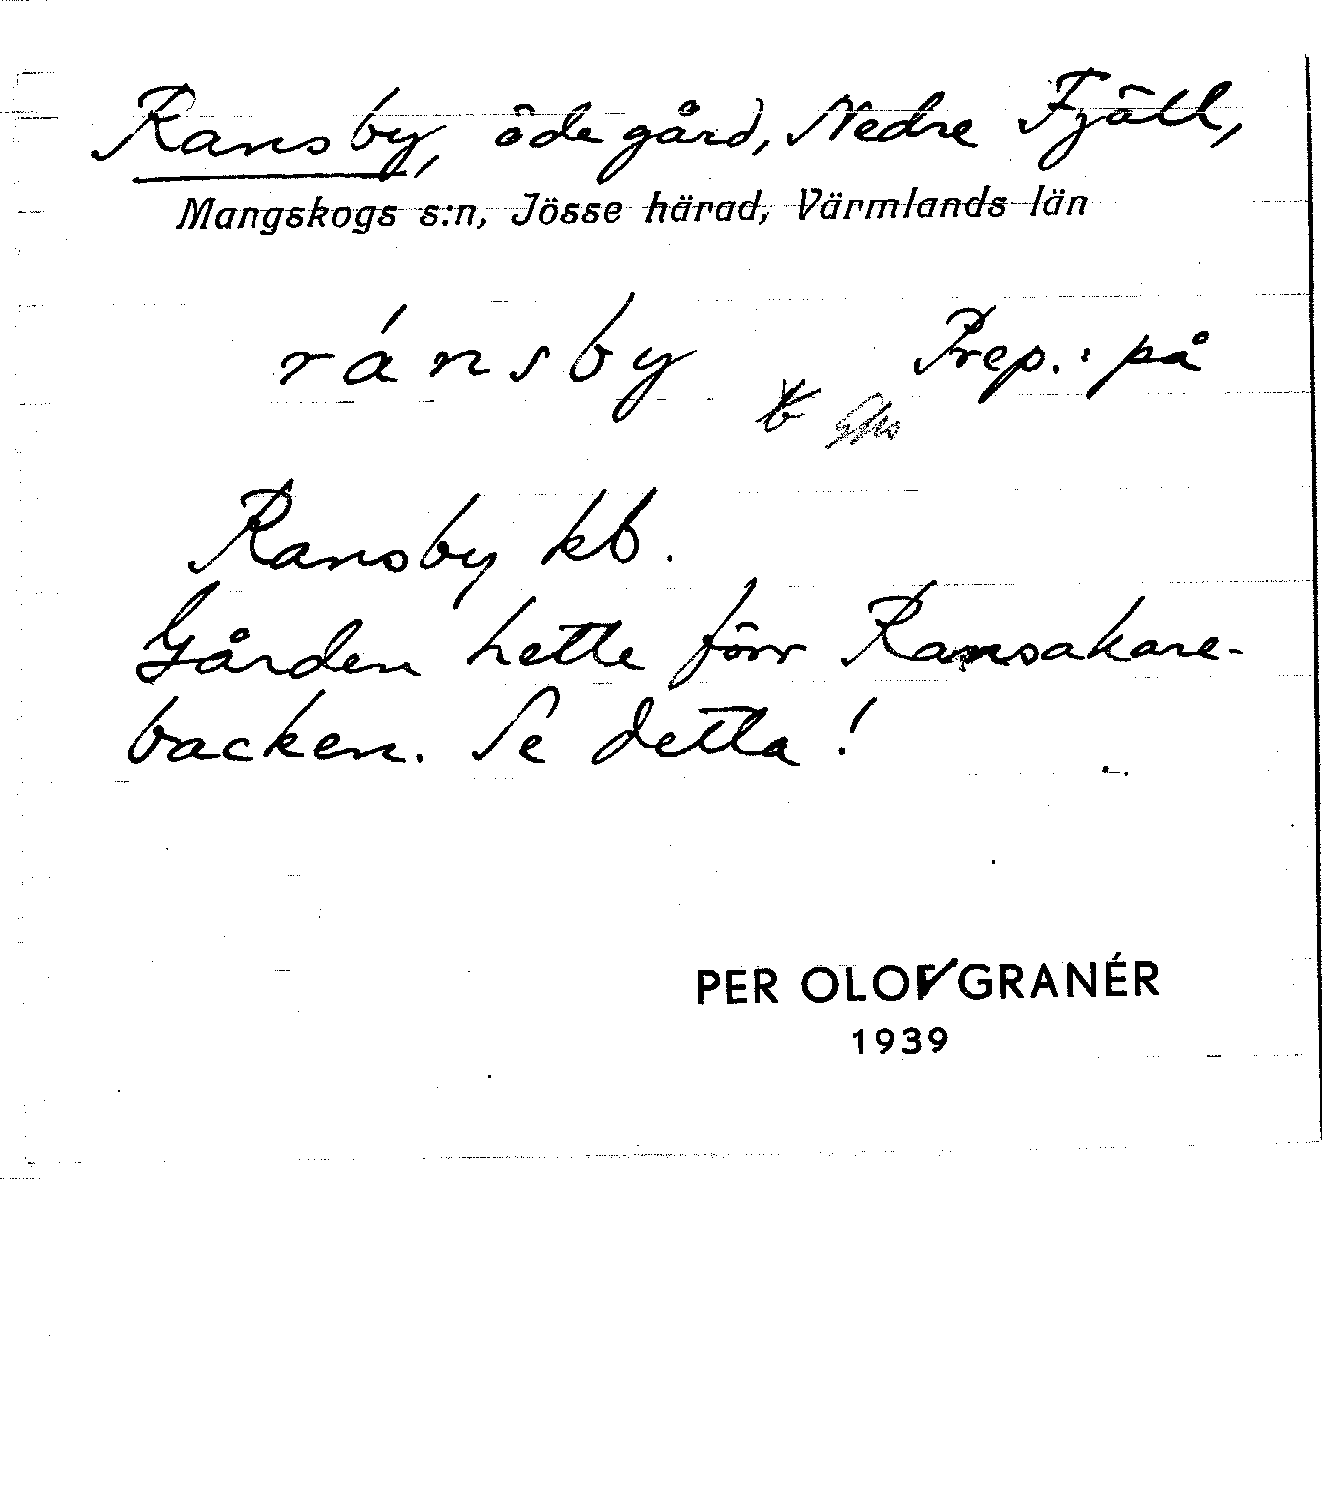 Ransby, ödegård, Nedre Fjäll,
Mangskogs s:n, Jösse härad, Värmlands län
ránsby Prep.: på
Ransby kb.
Gården hette förr Ransakare-
backen. Se detta!
PER OLOF GRANÉR
1939